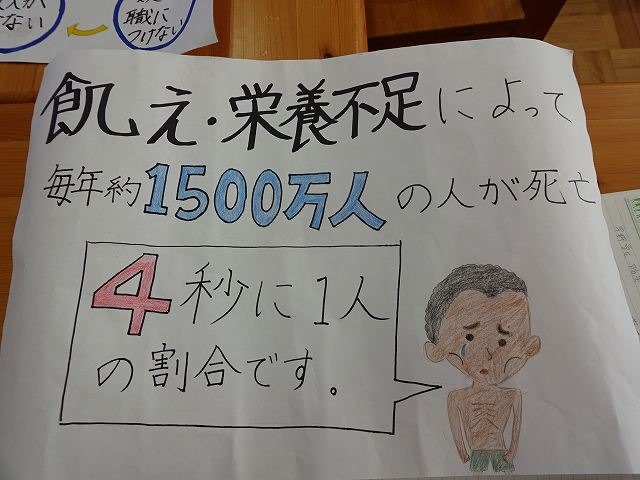 職に
つけない
飢え・栄養不足によって
毎年約1500万人の人が死亡
4秒に1人
の割合です。